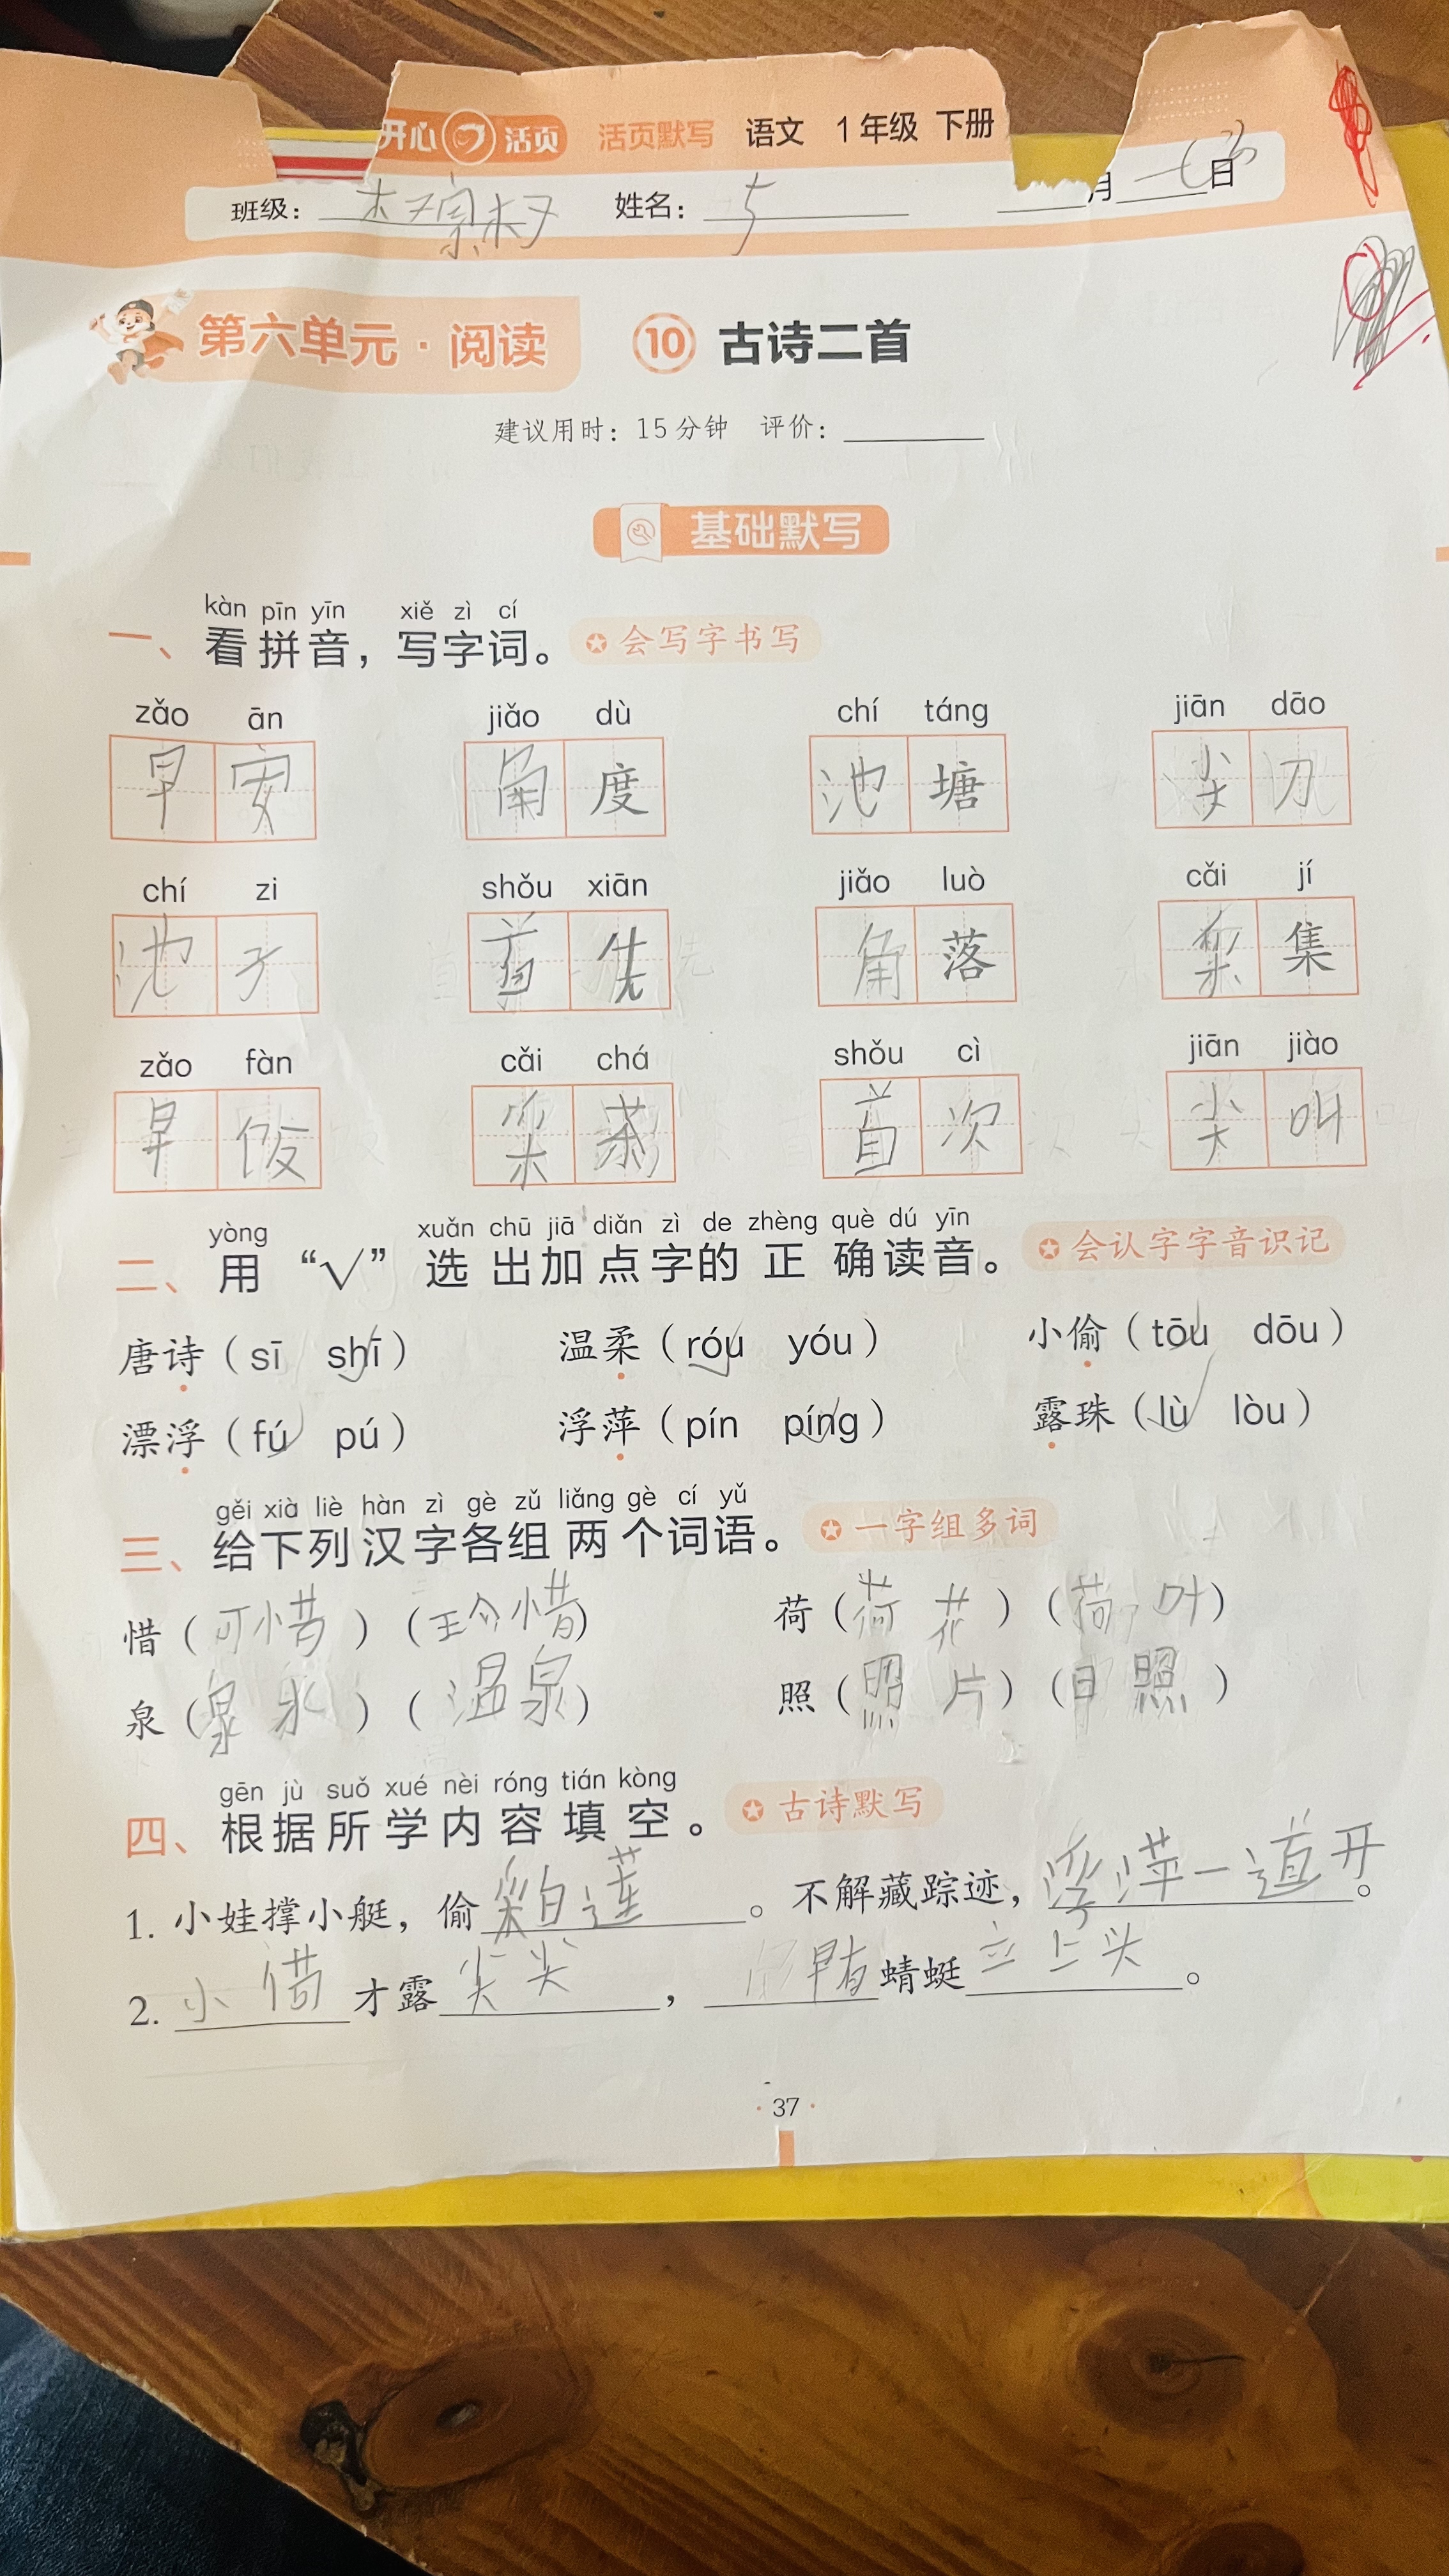 开心 活页 活页默写 语文 1年级 下册
班级： 姓名： 月 日
第六单元·阅读 ⑩ 古诗二首
建议用时：15分钟 评价：
基础默写
kàn pīn yīn xiě zì cí
一、看拼音，写字词。 会写字书写
zǎo ān jiǎo dù chí táng jiān dāo
早安 角度 池塘 尖刀
chí zi shǒu xiān jiǎo luò cǎi jí
池子 首先 角落 采集
zǎo fàn cǎi chá shǒu cì jiān jiào
早饭 采茶 首次 尖叫
yòng xuǎn chū jiā diǎn zì de zhèng què dú yīn
二、用“√”选出加点字的正确读音。 会认字字音识记
唐诗（sī shī） 温柔（róu yóu） 小偷（tōu dōu）
漂浮（fú pú） 浮萍（pín píng） 露珠（lù lòu）
gěi xià liè hàn zì gè zǔ liǎng gè cí yǔ
三、给下列汉字各组两个词语。 一字组多词
惜（可惜）（珍惜） 荷（荷花）（荷叶）
泉（泉水）（温泉） 照（照片）（日照）
gēn jù suǒ xué nèi róng tián kòng
四、根据所学内容填空。 古诗默写
1. 小娃撑小艇，偷采白莲。不解藏踪迹，浮萍一道开。
2. 小 才露尖尖，早有蜻蜓立上头。
37